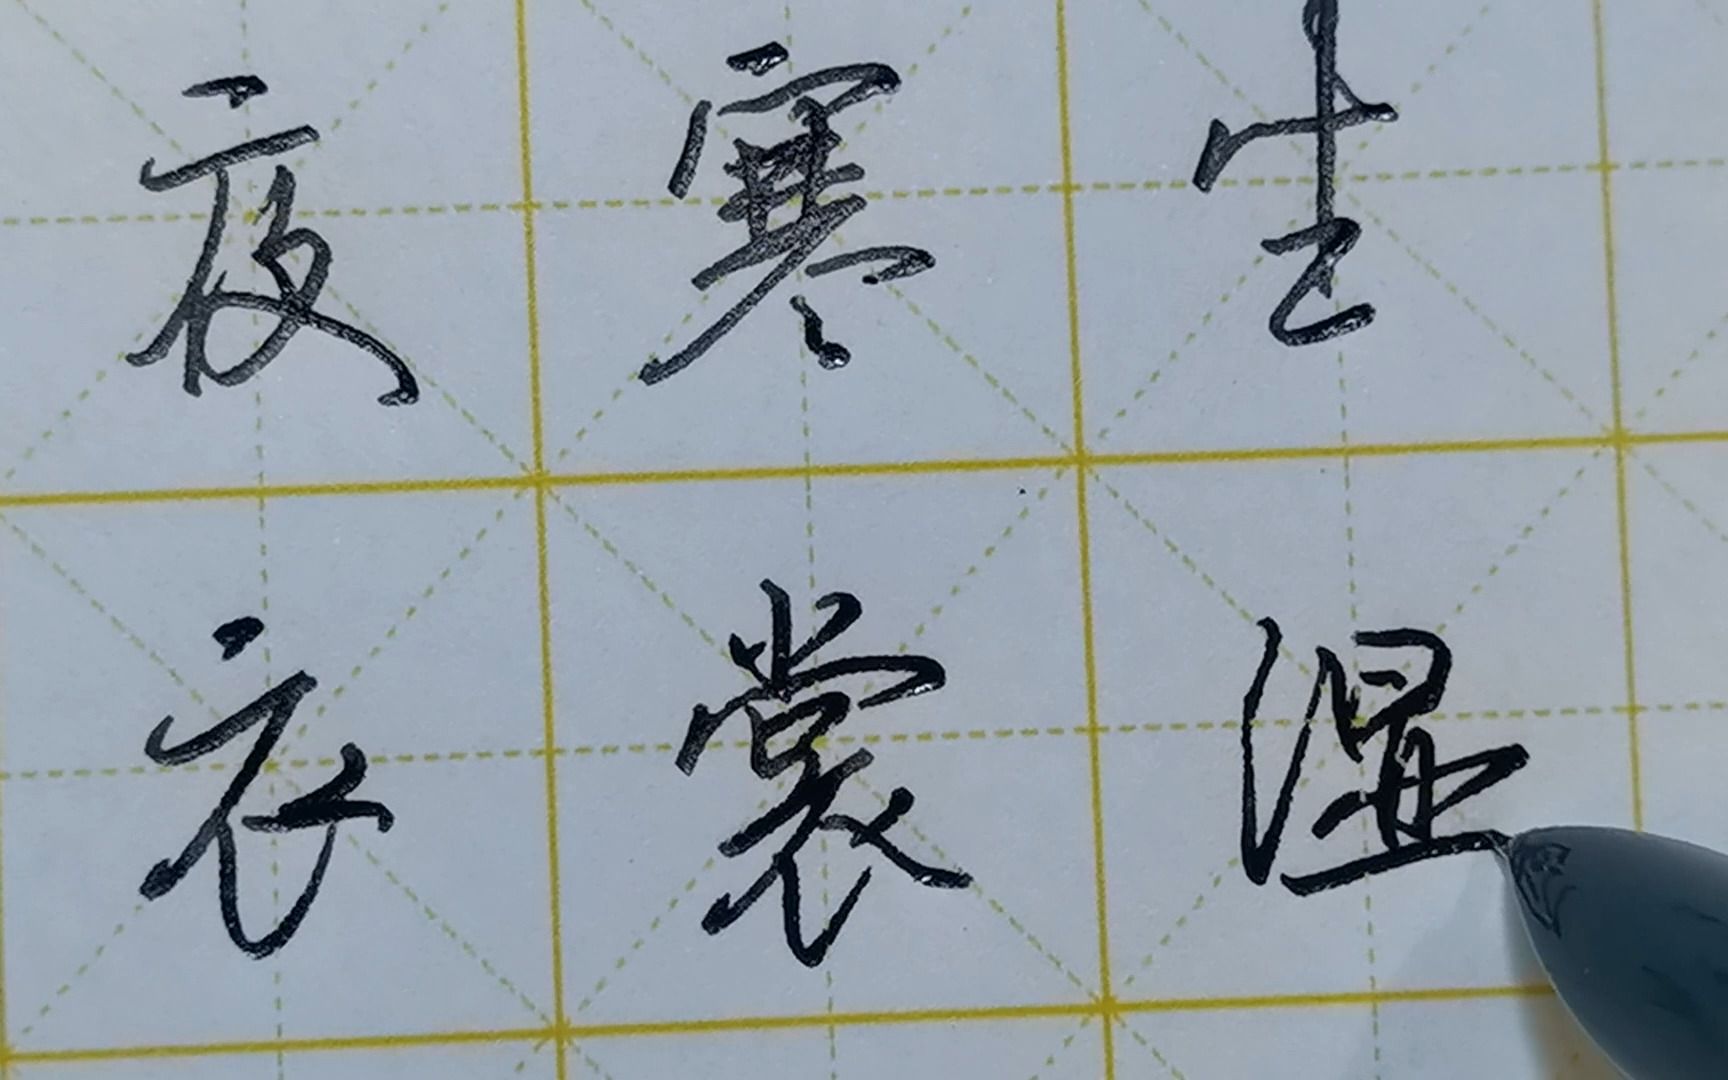 夜寒生
衣裳湿